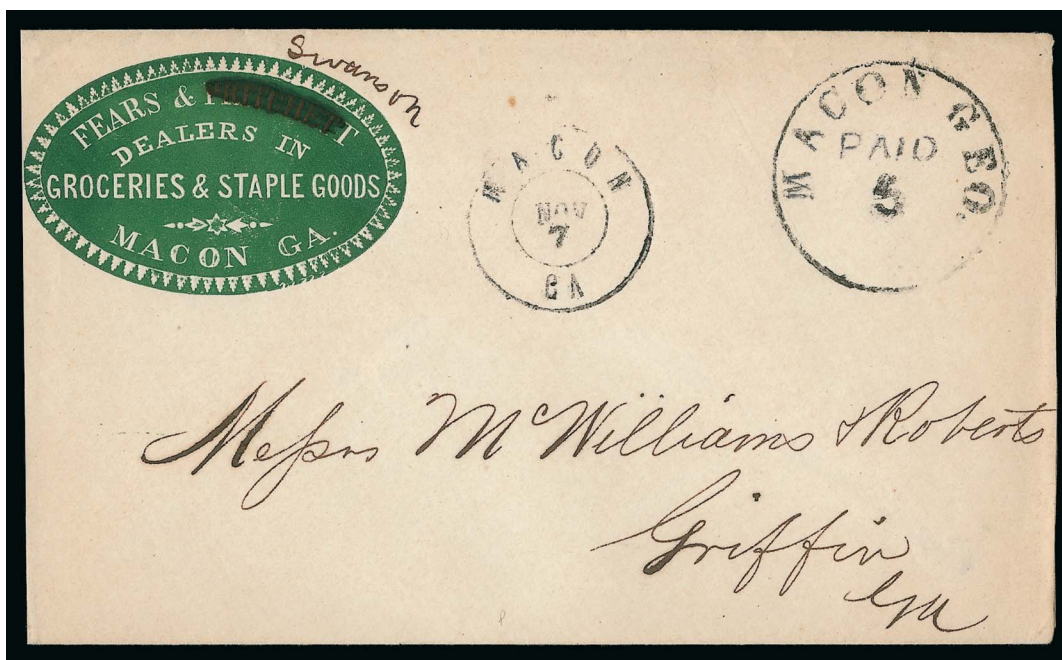 Swanson
FEARS & PRITCHETT
DEALERS IN
GROCERIES & STAPLE GOODS
MACON GA.
MACON
NOV
7
GA
MACON GEO.
PAID
5
Messrs McWilliams & Roberts
Griffin
Ga